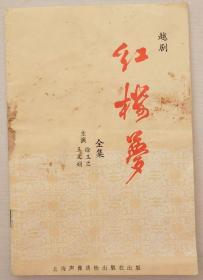 越剧
红楼梦
全集
主演 徐玉兰
王文娟
上海声像读物出版社出版